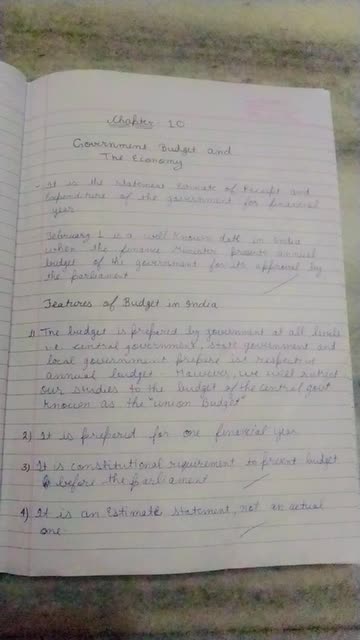 Chapter 10
Government Budget and
The Economy
- It is the statement Estimate of Receipt and
Expenditure of the government for financial
year
February 1 is a well known date in India
when the finance Minister presents annual
budget of the government for its approval by
the parliament
Features of Budget in India
1) The budget is prepared by government at all levels
i.e central government, state government and
local government prepare its respective
annual budget. However, we will restrict
our studies to the budget of the central govt
known as the "Union Budget"
2) It is prepared for one financial year
3) It is constitutional requirement to present budget
before the parliament
4) It is an Estimate statement, not an actual
one